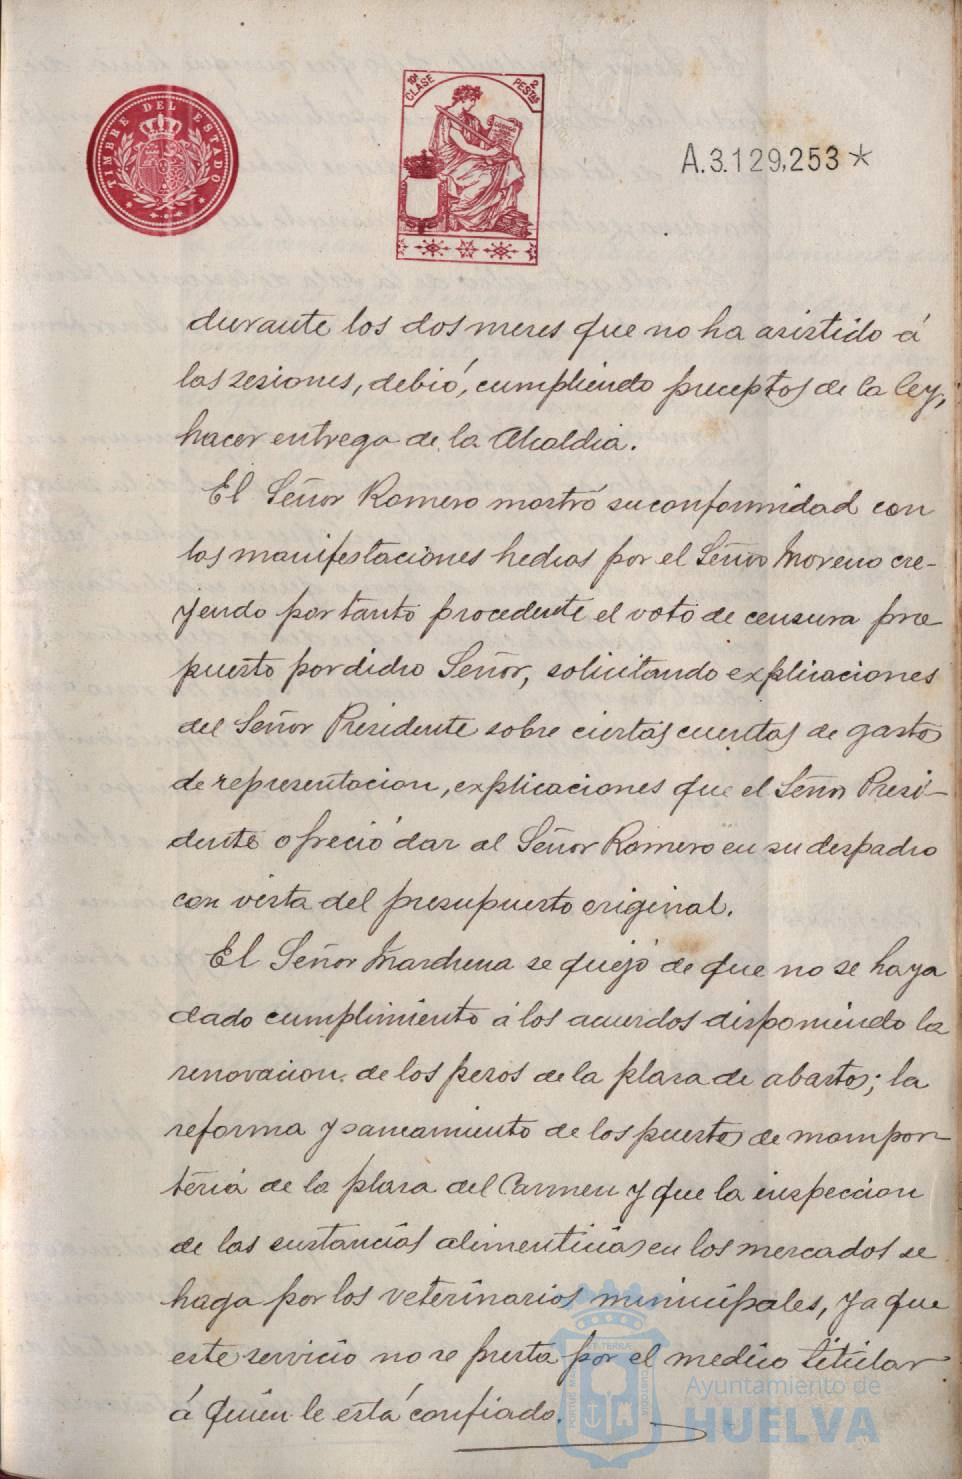 TIMBRE DEL ESTADO
10ª CLASE
2 PESTAS
A.3.129,253*
durante los dos meses que no ha asistido á
las sesiones, debió, cumpliendo preceptos de la ley,
hacer entrega de la Alcaldia.
El Señor Romero mostró su conformidad con
las manifestaciones hechas por el Señor Moreno cre-
yendo por tanto procedente el voto de censura pro
puesto por dicho Señor, solicitando explicaciones
del Señor Presidente sobre ciertas cuentas de gastos
de representacion, explicaciones que el Señor Presi-
dente ofreció dar al Señor Romero en su despacho
con vista del presupuesto original.
El Señor Marchena se quejó de que no se haya
dado cumplimiento á los acuerdos disponiendo la
renovacion de los pesos de la plasa de abastos; la
reforma y saneamiento de los puestos de mampos-
teria de la plasa del Carmen y que la inspeccion
de las sustancias alimenticias en los mercados se
haga por los veterinarios municipales, ya que
este servicio no se presta por el medico titular
á quien le está confiado.
Ayuntamiento de
HUELVA